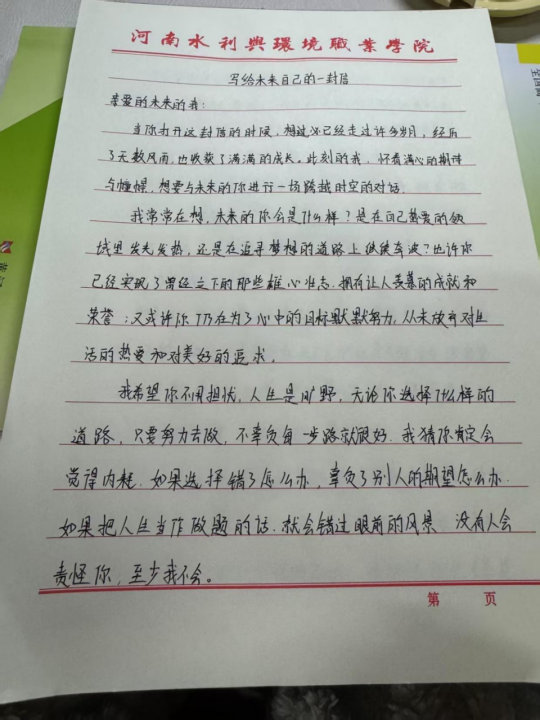 河南水利與環境職業學院
写给未来自己的一封信
亲爱的未来的我：
当你打开这封信的时候，想过你已经走过许多岁月，经历
了无数风雨，也收获了满满的成长。此刻的我，怀着满心的期待
与憧憬，想要与未来的你进行一场跨越时空的对话
我常常在想，未来的你会是什么样？是在自己热爱的领
域里发光发热，还是在追寻梦想的道路上继续奔波？也许你
已经实现了曾经立下的那些雄心壮志，拥有让人羡慕的成就和
荣誉；又或许你仍在为了心中的目标默默努力，从未放弃对生
活的热爱和对美好的追求。
我希望你不用担忧，人生是旷野，无论你选择什么样的
道路，只要努力去做，不辜负每一步路就很好。我猜你肯定会
觉得内耗，如果选择错了怎么办，辜负了别人的期望怎么办，
如果把人生当作做题的话，就会错过眼前的风景，没有人会
责怪你，至少我不会。
第 页